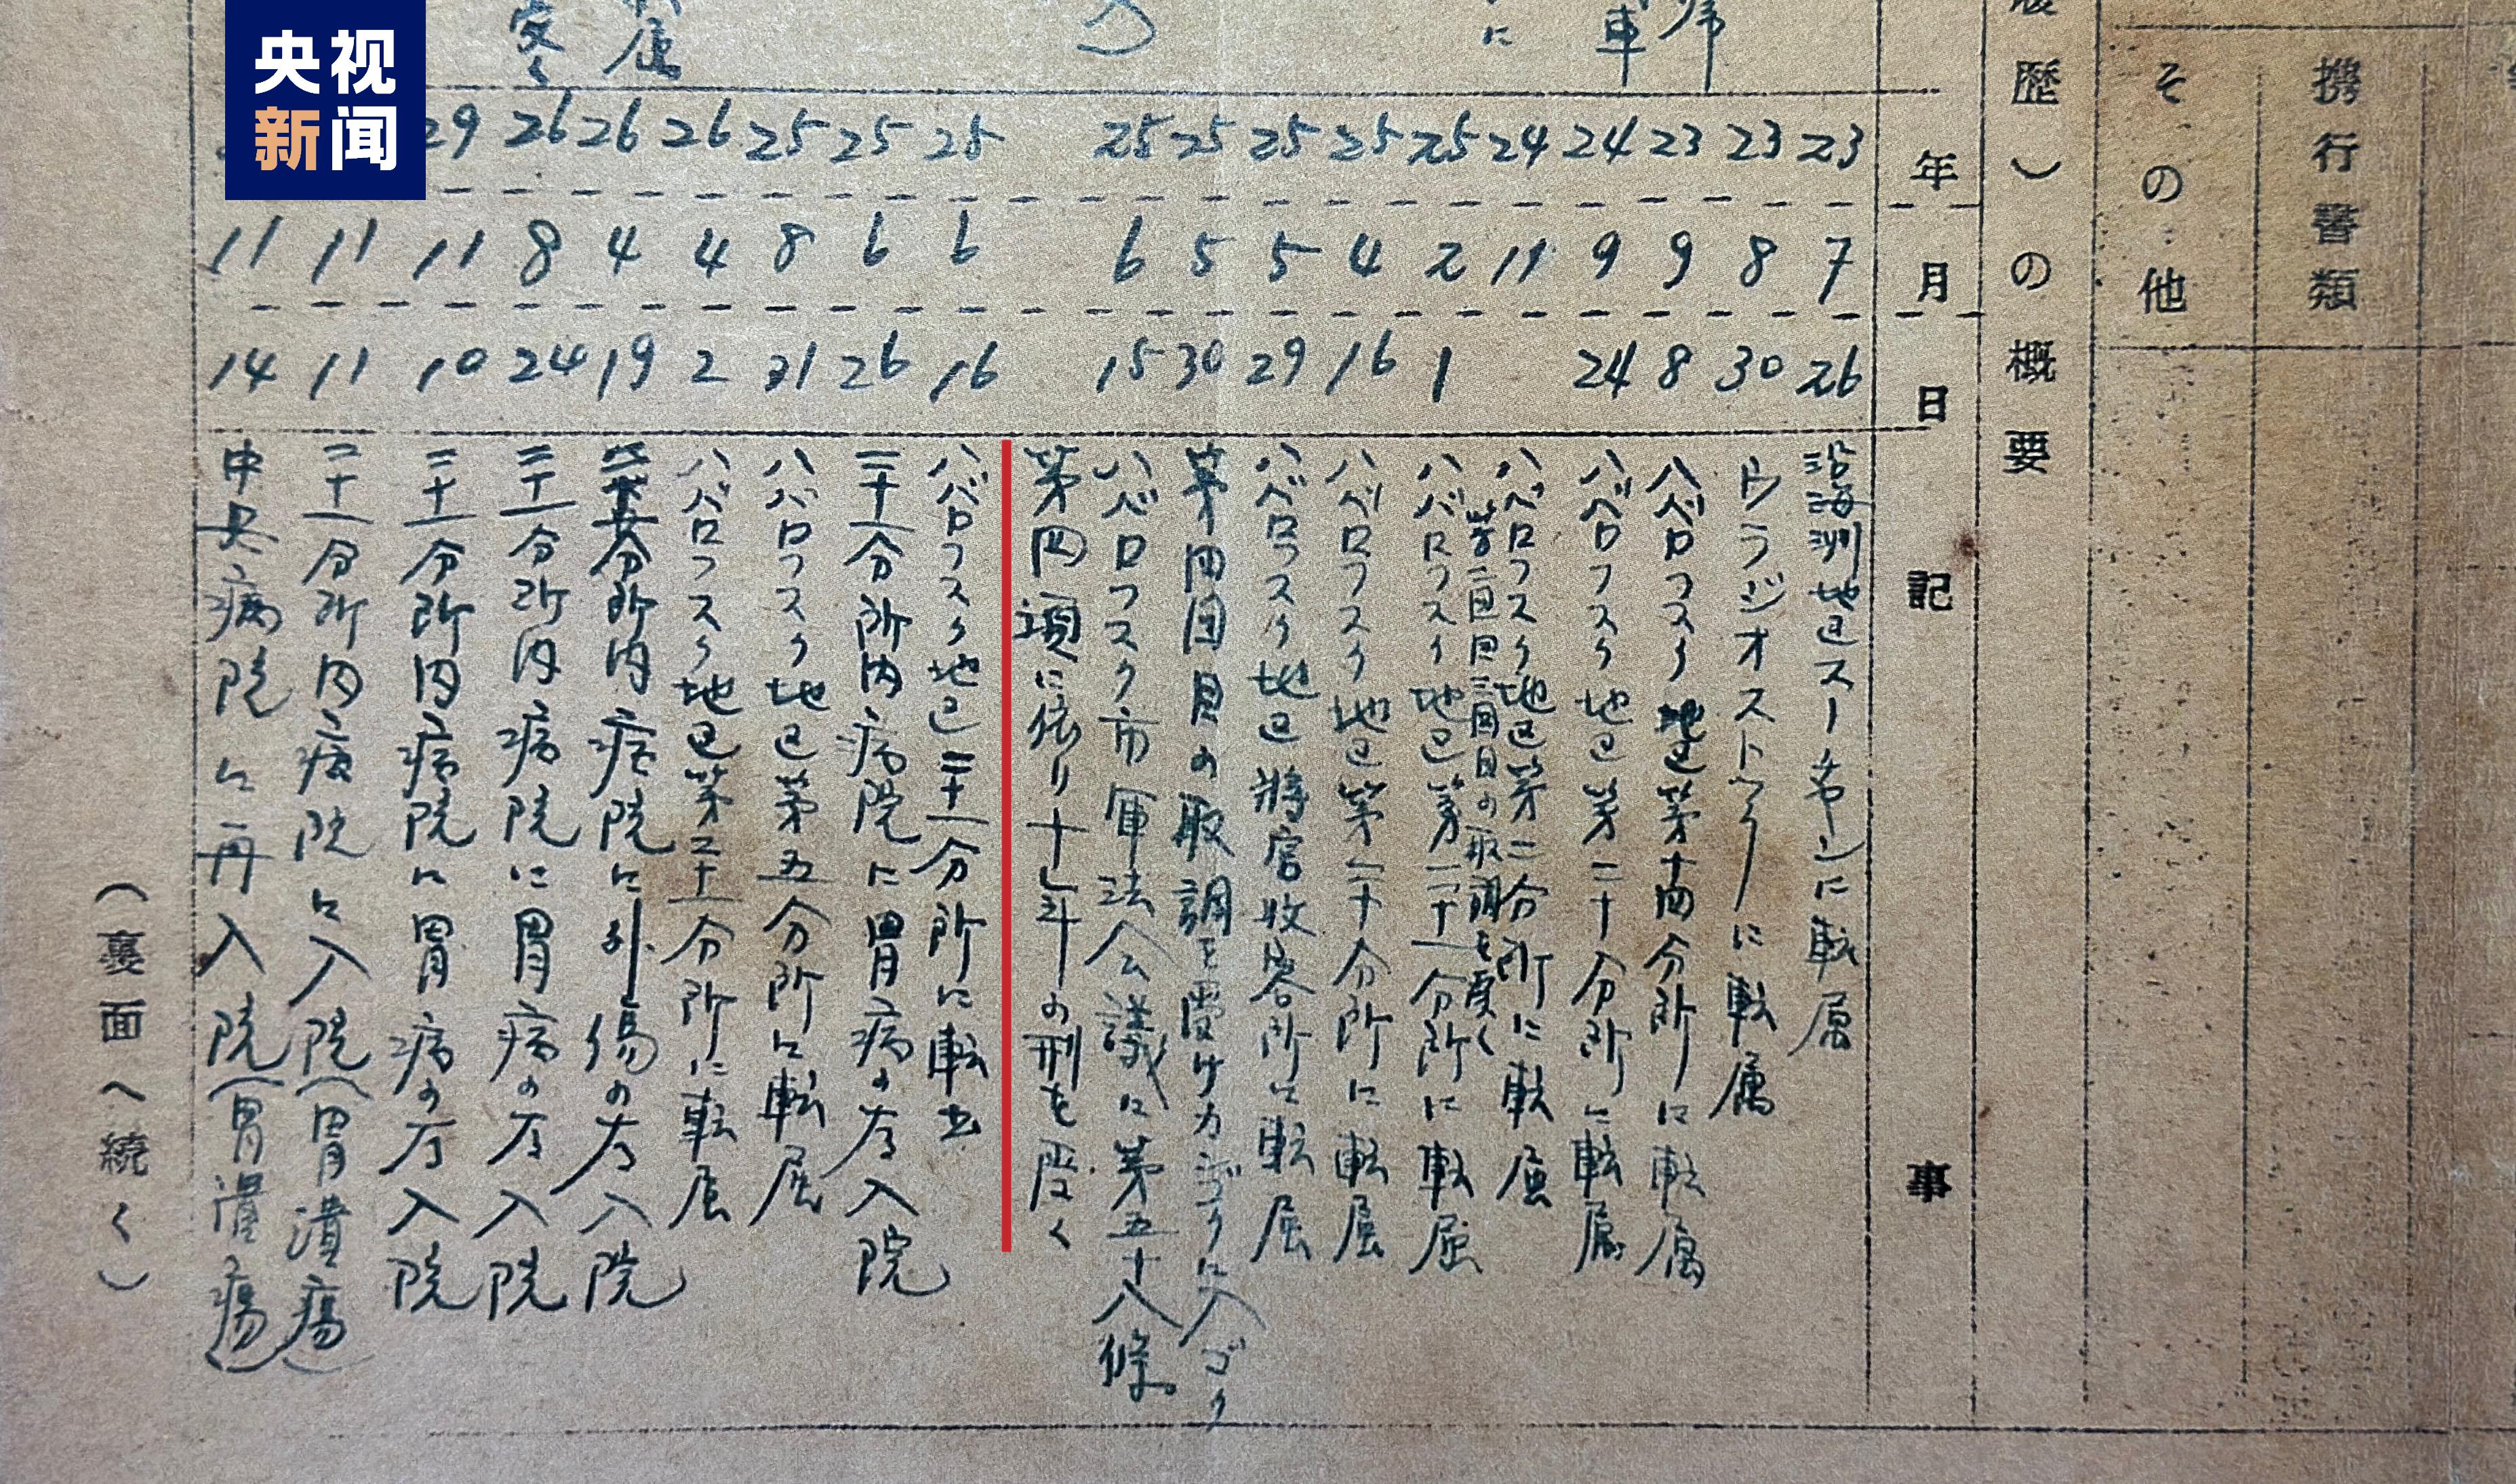 央视
新闻
携行書類
その他
歴)の概要
年 月 日 記事
23 7 26 沿海州地区スーチャンに転属
23 8 30 ウラジオストックに転属
23 9 8 ハバロフスク地区第十四分所に転属
24 9 24 ハバロフスク地区第二十分所に転属
24 11 ハバロフスク地区第二分所に転属
第二回三回目の取調を受く
25 2 1 ハバロフスク地区第二十一分所に転属
25 4 16 ハバロフスク地区第二十分所に転属
25 5 29 ハバロフスク地区将官収容所に転属
25 5 30 第四回目の取調を受けカ
25 6 15 ハバロフスク市軍法会議に第五十八條
第四項に依り十年の刑を受く
25 6 16 ハバロフスク地区二十一分所に転出
25 6 26 二十一分所内病院に胃病の為入院
25 8 31 ハバロフスク地区第五分所に転属
26 4 2 ハバロフスク地区第二十一分所に転属
26 4 19 分所内病院に外傷の為入院
26 8 24 二十一分所内病院に胃病の為入院
29 11 10 二十一分所内病院に胃病の為入院
11 11 二十一分所内病院に入院(胃潰瘍)
11 14 中央病院に再入院(胃潰瘍)
(裏面へ続く)